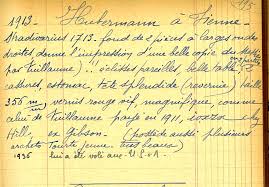 1913 - Hubermann à Vienne
Stradivarius 1713. fond de 2 pièces à larges ondes
droites donne l'impression d'une belle copie du
par Vuillaume) !! éclisses pareilles, belle table, 2
cassures, estomac, tête splendide (resernie) taille
356 m/m vernis rouge vif, magnifique, comme
celui de Vuillaume payé en 1911, chez
Hill, ex Gibson - (possède aussi plusieurs
archets Tourte jeune, très beaux)
1936 lui a été volé aux U.S.A.